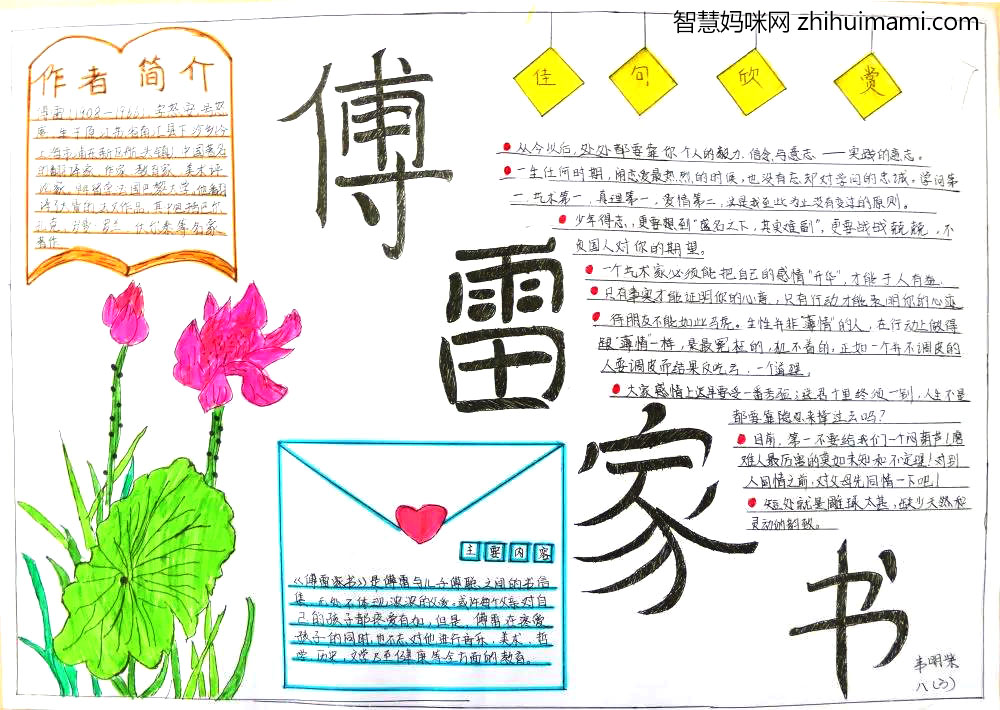 智慧妈咪网 zhihuimami.com
作者简介
傅雷(1908-1966),字怒安,号怒
庵,生于原江苏省南汇县下沙乡(今
上海市浦东新区航头镇),中国著名
的翻译家、作家、教育家、美术评
论家,
大量的法文作品,其中包括巴尔
扎克、罗曼·罗兰、伏尔泰等名家
著作。
傅雷家书
佳句欣赏
从今以后,处处都要靠你个人的毅力、信念与意志——实践的意志。
一生任何时期,闹恋爱最热烈的时候,也没有忘却对学问的忠诚。学问第
一、艺术第一、真理第一、爱情第二,这是我至此为止没有变过的原则。
少年得志,更要想到“盛名之下,其实难副”,更要战战兢兢,不
负国人对你的期望。
一个艺术家必须能把自己的感情“升华”,才能于人有益。
只有事实才能证明你的心意,只有行动才能表明你的心迹
待朋友不能如此马虎。生性并非“薄情”的人,在行动上做得
跟“薄情”一样,是最冤枉的,犯不着的。正如一个并不调皮的
人要调皮而结果反吃亏,一个道理。
大家感情上
都要靠隐忍来撑过去吗?
目前,第一不要给我们一个闷葫芦!磨
难人最厉害的莫如未知和不定!对别
人同情之前,对父母先同情一下吧!
短处就是雕琢太甚,缺少天然和
灵动的韵致。
主要内容
《傅雷家书》是傅雷与儿子傅聪之间的书信
集,无处不体现浓浓的父爱。或许每个父亲对自
己的孩子都疼爱有加,但是,傅雷在疼爱
孩子的同时,也不忘对他进行音乐、美术、哲
学、历史、文学乃至健康等全方面的教育。
韦明柴
八(3)
www.zhihuimami.com